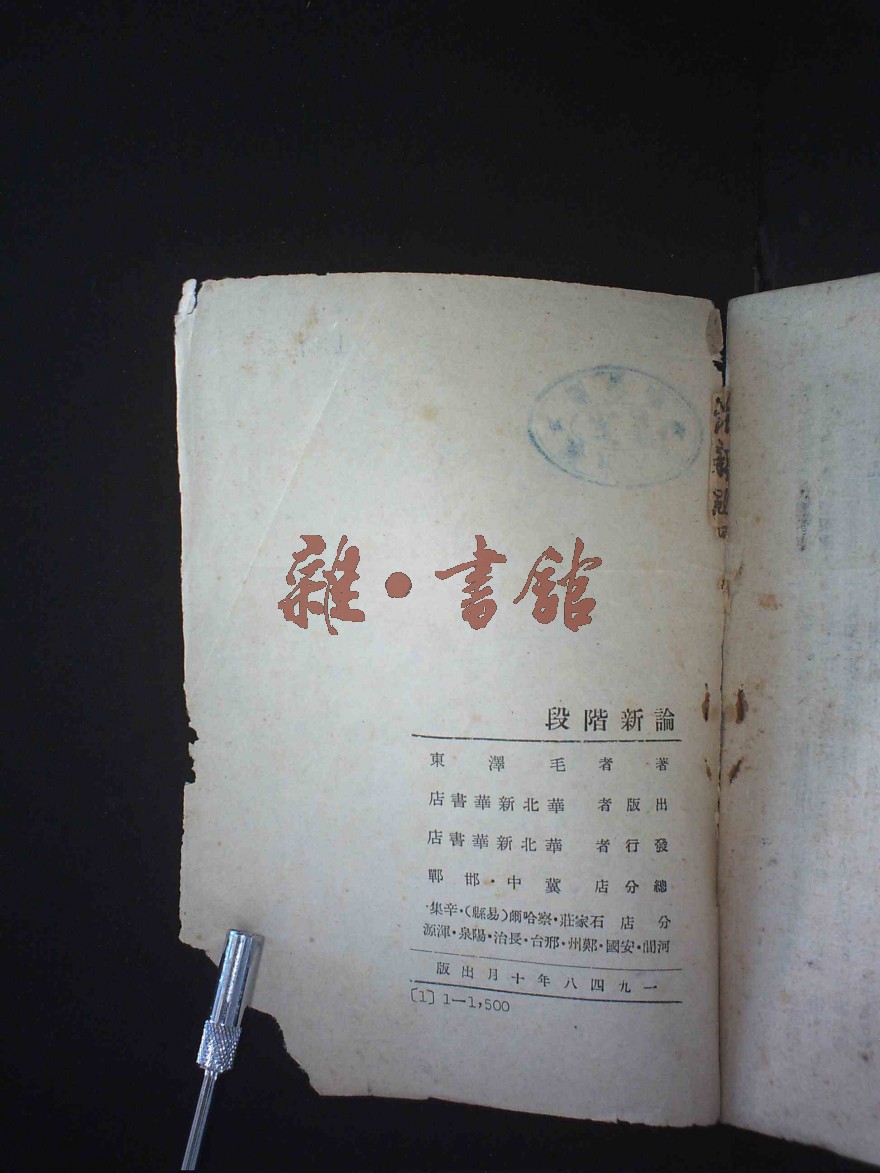 雜·書館
論新階段
著者 毛澤東
出版者 華北新華書店
發行者 華北新華書店
總分店 冀中·邯鄲
分店 石家莊·察哈爾(易縣)·辛集·
河間·安國·鄭州·邢台·長治·陽泉·渾源
一九四八年十月出版
[1] 1—1,500